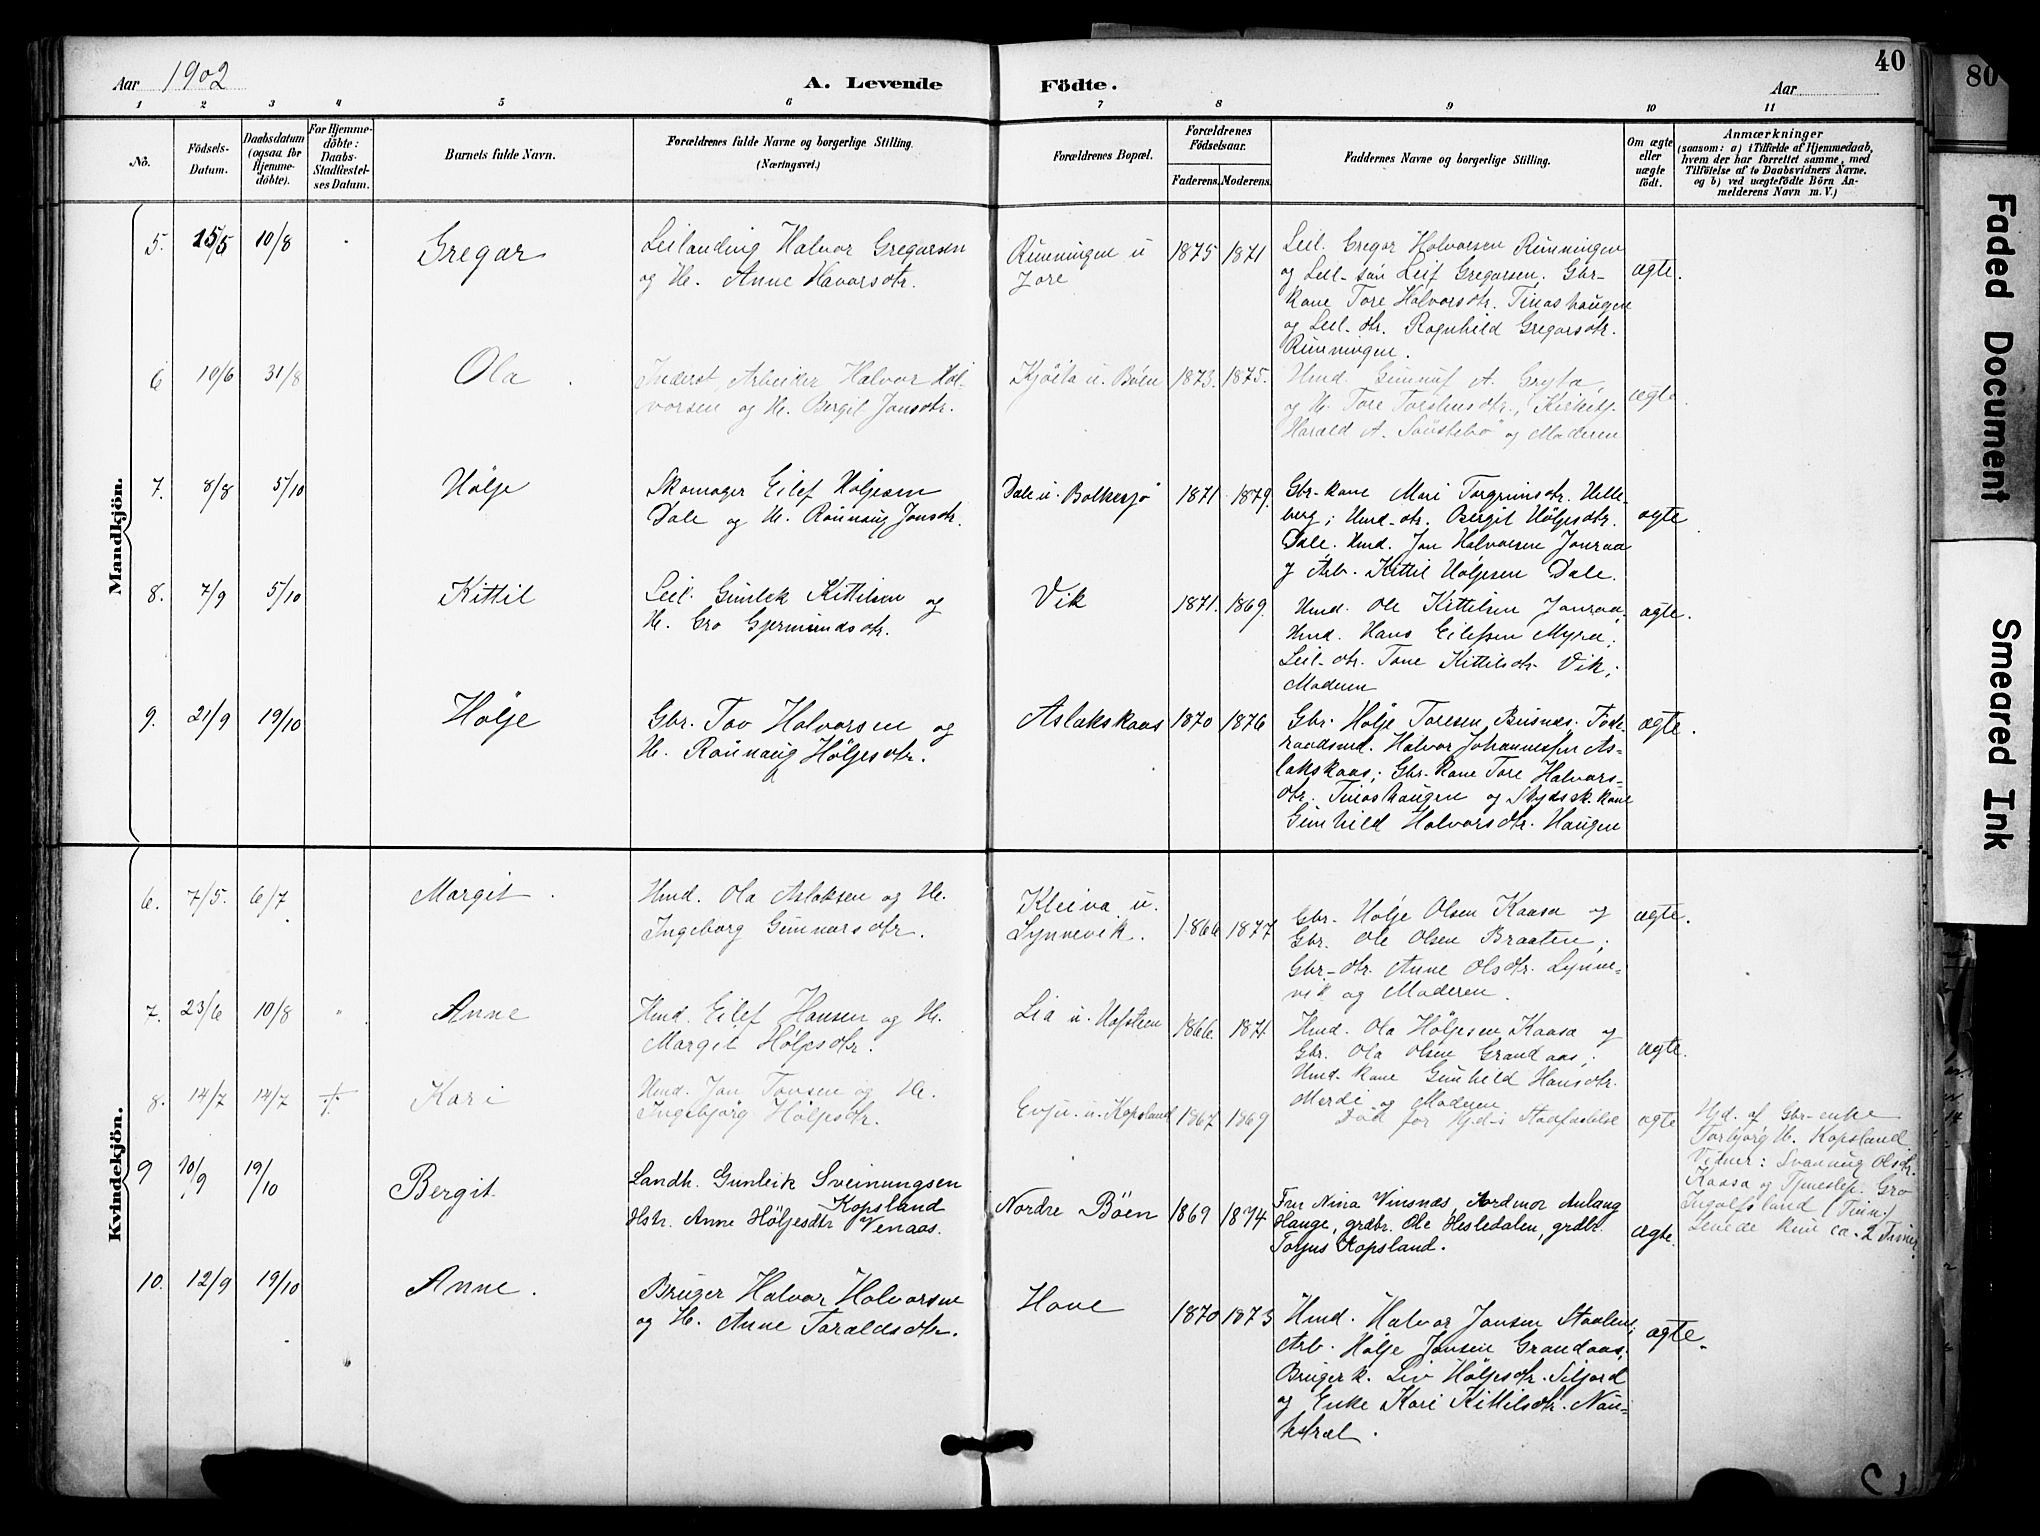 Aar 1902
A. Levende
Födte.
Aar
40
80
1 2 3 4 5 6 7 8 9 10 11
No.
Födsels-
Datum.
Daabsdatum
(ogsaa for
Hjemme-
döbte).
For Hjemme-
döbte:
Daabs-
Stadfæstel-
ses Datum.
Barnets fulde Navn.
Forældrenes fulde Navne og borgerlige Stilling.
(Næringsvei.)
Forældrenes Bopæl.
Forældrenes
Födselsaar.
Faderens. Moderens.
Faddernes Navne og borgerlige Stilling.
Om ægte
eller
uægte
födt.
Anmærkninger
(saasom: a) i Tilfælde af Hjemmedaab,
hvem der har forrettet samme, med
Tilföielse af to Daabsvidners Navne.
og b) ved uægtefödte Börn An-
melderens Navn m. V.)
Mandkjön.
5. 15/5 10/8 Gregar
Leilending Halvor Gregarsen
og H. Anne Havorsdtr.
Rünningen u
Jore
1875 1871
Leil. Gregar Halvorsen Rünningen
og Leil-sön Leif Gregarsen. Gbr-
kone Tore Halvorsdtr. Tinashaugen
og Leil-dtr. Ragnhild Gregarsdtr.
Rünningen.
ægte.
6 10/6 31/8 Ola
Inderst, Arbeider Halvor Hal-
vorsen og H. Bergit Jonsdtr.
Kjösta u. Böen
1873. 1875.
Hmd. Gunnuf A. Gryta,
og H. Tore Torstensdtr., Kirketj.
Harald A. Saustebö og Moderen
ægte.
7. 8/8 5/10 Hölje
Skomager Eilef Höljesen
Dale og H. Raunaug Jonsdtr.
Dale u. Bolkesjö
1871 1879.
Gbr-kone Mari Torgrimsdtr. Helle-
berg; Hmd-dtr. Bergit Höljesdtr.
Dale. Hmd. Jon Halvorsen Jonraa
og Arb. Kittil Höljesen Dale.
ægte
8. 7/9 5/10 Kittil
Leil. Günlek Kittilsen og
H. Gro Gjermundsdtr.
Vik
1871. 1869.
Hmd. Ole Kittilsen Jonraa,
Hmd. Hans Eilefsen Myra;
Leil-dtr. Tone Kittilsdtr Vik;
Moderen
ægte.
9. 21/9 19/10 Hölje
Gbr. Tov Halvorsen og
H. Raunaug Höljesdtr.
Aslakskaas
1870 1876
Gbr. Hölje Toresen Busnæs. Fode-
raadsmd. Halvor Johannesen As-
lakskaas; Gbr-kone Tore Halvors-
dtr. Tinashaugen og Skydssk. kone
Gunhild Halvorsdtr. Haugen
ægte.
Kvindekjön.
6. 7/5. 6/7 Margit
Hmd. Ola Aslaksen og H.
Ingeborg Gunnarsdtr.
Kleiva u.
Lynnevik.
1866 1877
Gbr. Hölje Olsen Kaasa og
Gbr. Ole Olsen Braaten;
Gbr-dtr. Anne Olsdtr. Lynne-
vik og Moderen.
ægte.
7. 23/6 10/8 " Anne
Hmd. Eilef Hansen og H.
Margit Höljesdtr.
Lia u. Hofsteen
1866. 1871
Hmd. Ola Höljesen Kaasa og
Gbr. Ola Olsen Grandaas;
Hmd-kone Gunhild Hansdtr.
Merdi og Moderen
ægte.
8. 14/7 14/7 Kari
Hmd. Jon Tovsen og H.
Ingebjörg Höljesdtr.
Evju u. Kopsland
1867 1869
Död för Hjd-s Stadfæstelse
ægte
Hjd. af Gbr-enke
Torbjörg H. Kopsland
Vidner: Svanaug Olsdtr.
Kaasa og Tjenestep. Gro
Ingolfsland (Tinn.)
Levede kun ca. 2 Timer.
9 10/9 19/10 Bergit
Landh. Gunleik Sveinungsen
Kopsland
Hstr. Anne Höljesdtr Venaas.
Nordre Böen
1869 1874
Fru Nina Winsnæs, Jordmor Aslaug
Hauge, grdbr. Ole Hesledalen, grdbr.
Torjus Kopsland.
ægte.
10. 12/9 19/10 Anne.
Bruger Halvor Halvorsen
og H. Anne Taraldsdtr.
Hove
1870 1873
Hmd. Halvor Jonsen Staalene;
Arb. Hölje Jonsen Grandaas;
Bruger k. Liv Höljesdtr. Siljord
og Enke Kari Kittilsdtr. Nau-
hstræl.
ægte.
Faded Document
Smeared Ink